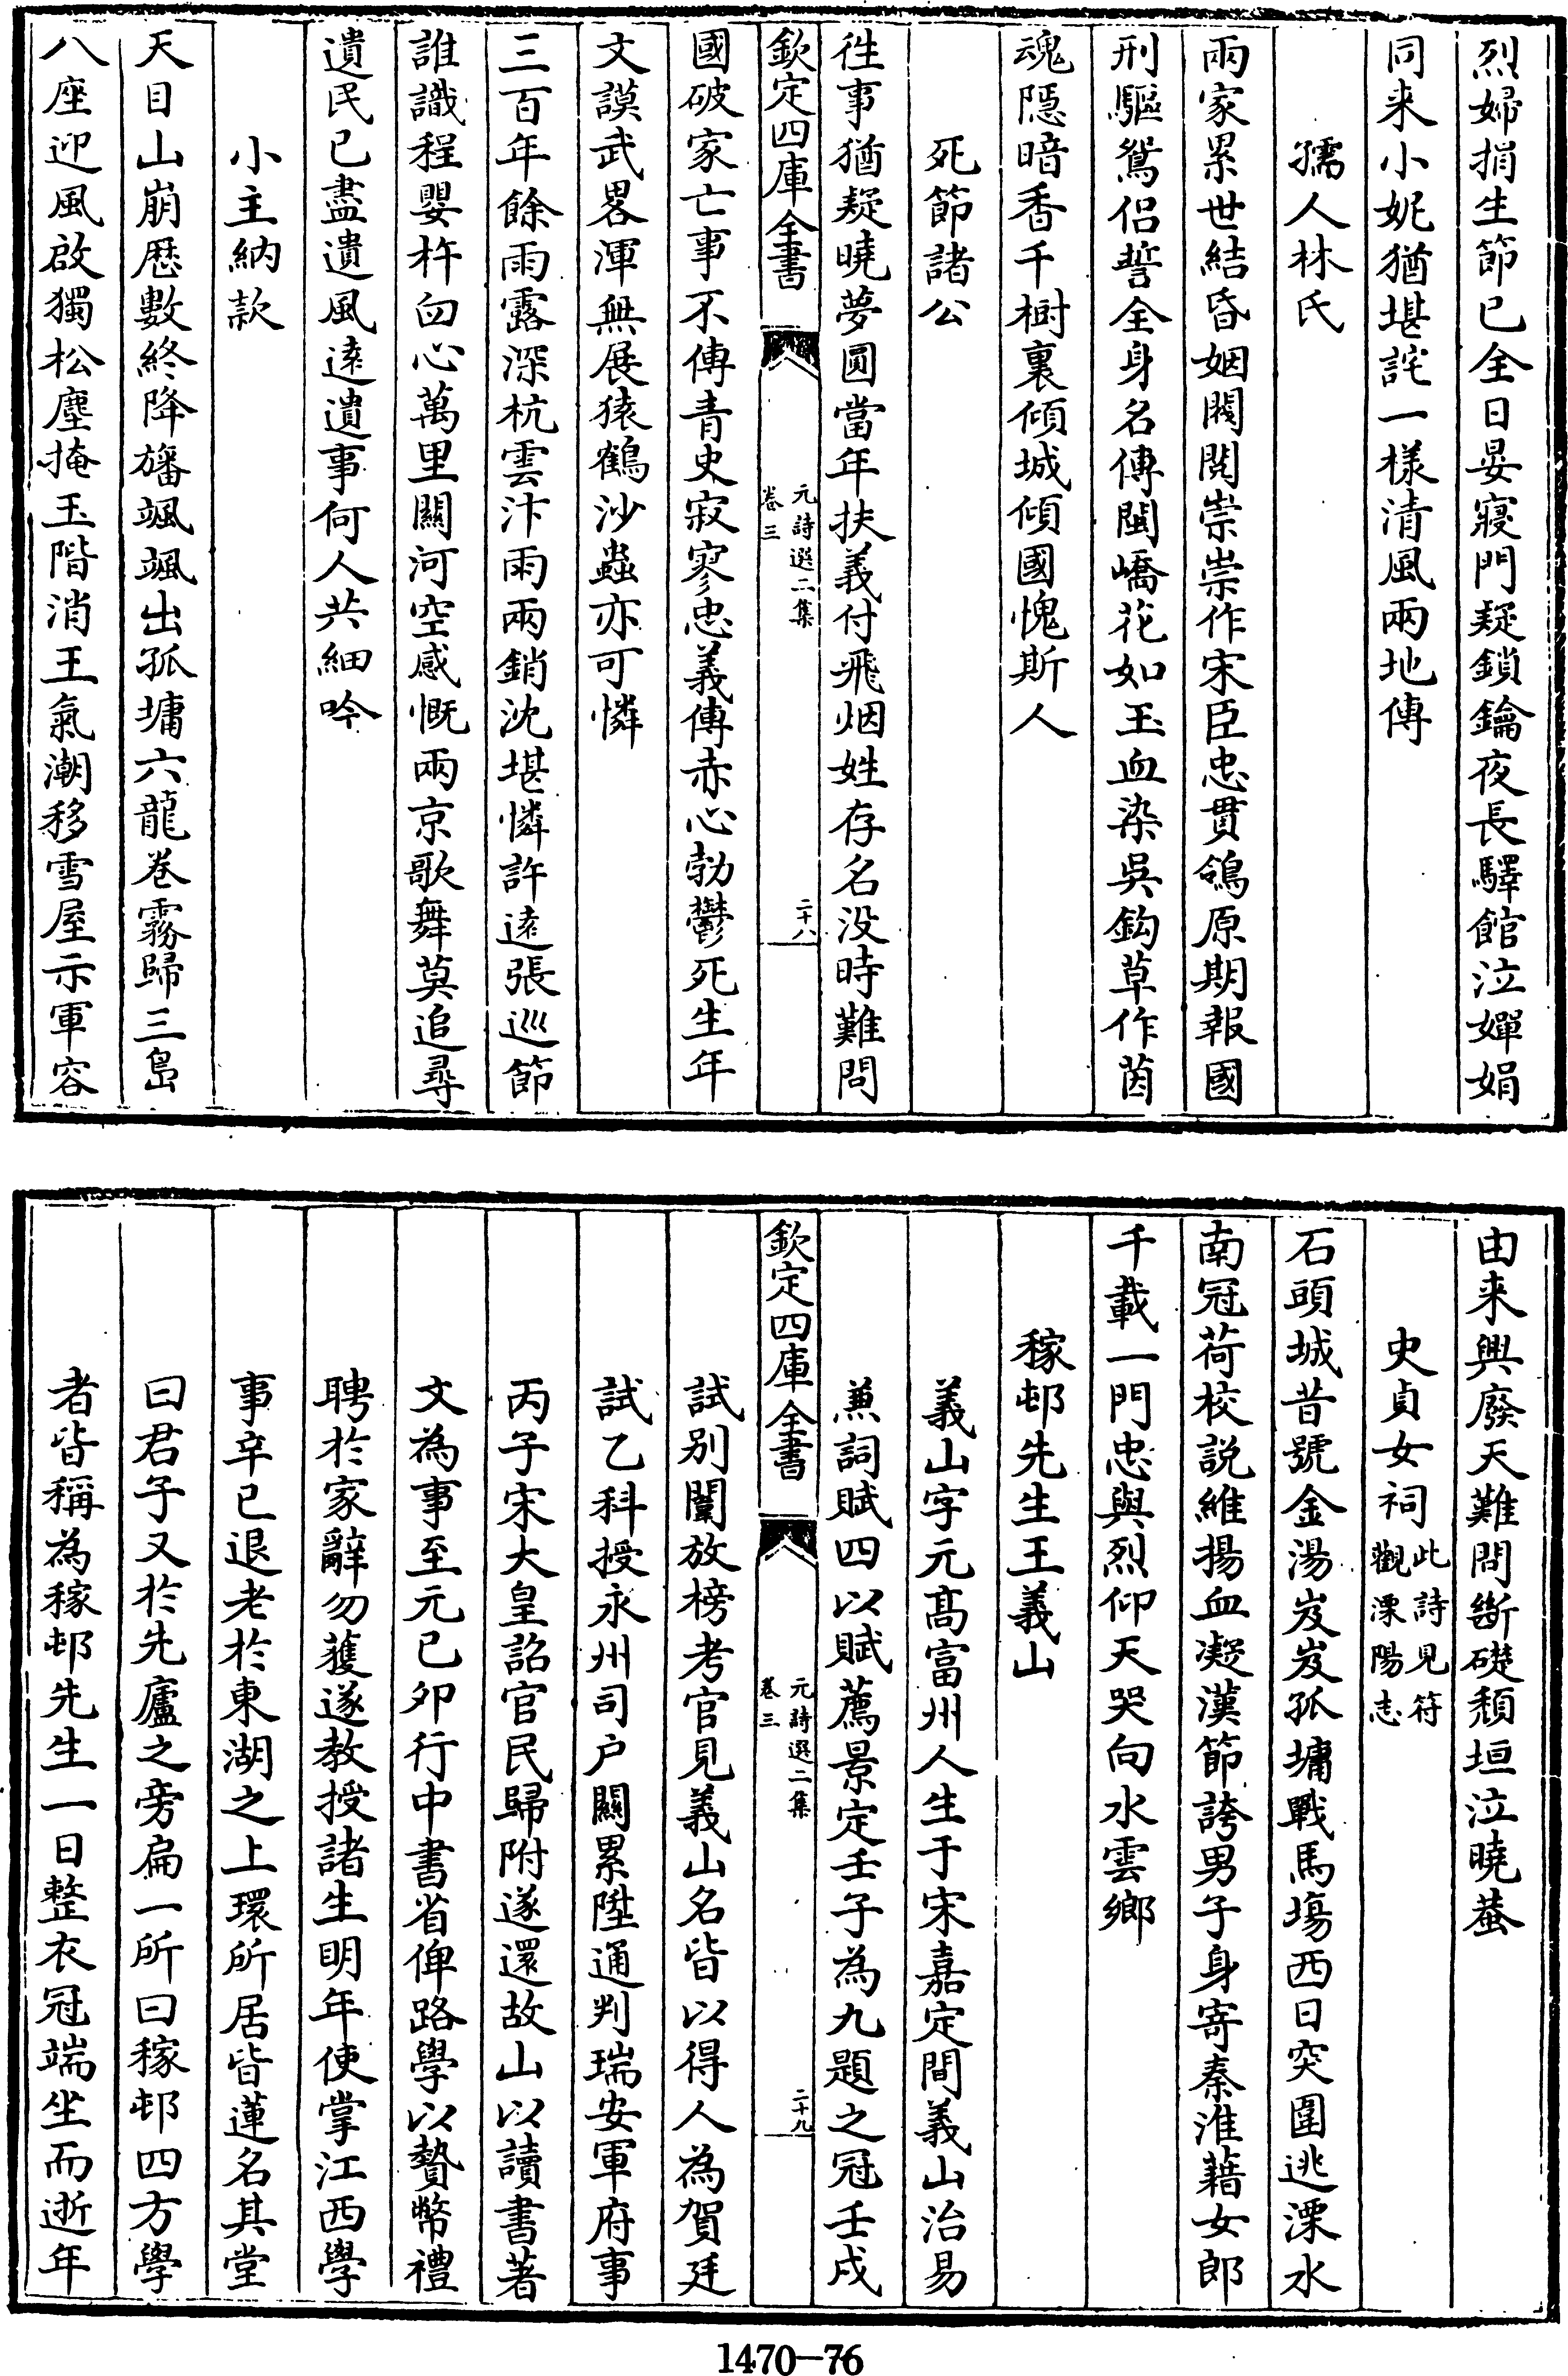 烈婦捐生節已全日晏寢門疑鎖鑰夜長驛館泣嬋娟
同来小妮猶堪詫一様清風兩地傳
孺人林氏
兩家累世結昏姻閥閱崇崇作宋臣忠貫鴒原期報國
刑驅鴛侣誓全身名傳閩嶠花如玉血染吳鈎草作茵
魂隠暗香千樹裏傾城傾國愧斯人
死節諸公
徃事猶疑曉夢圓當年扶義付飛烟姓存名没時難問
欽定四庫全書
元詩選二集
卷三
二十八
國破家亡事不傳青史寂寥忠義傳赤心勃鬱死生年
文謨武畧渾無展猿鶴沙蟲亦可憐
三百年餘雨露深杭雲汴雨兩銷沈堪憐許逺張巡節
誰識程嬰杵臼心萬里關河空感慨兩京歌舞莫追尋
遺民已盡遺風逺遺事何人共細吟
小主納款
天目山崩歴數終降旛颯颯出孤墉六龍巻霧歸三島
八座迎風啟獨松塵掩玉階消王氣潮移雪屋示軍容
由来興廢天難問斷礎頽垣泣曉蛬
史貞女祠此詩見符
觀溧陽志
石頭城昔號金湯岌岌孤墉戰馬塲西日突圍逃溧水
南冠荷校説維揚血凝漢節誇男子身寄秦淮藉女郎
千載一門忠與烈仰天哭向水雲鄉
稼邨先生王義山
義山字元髙富州人生于宋嘉定間義山治易
兼詞賦四以賦薦景定壬子為九題之冠壬戌
欽定四庫全書
元詩選二集
卷三
二十九
試别闈放榜考官見義山名皆以得人為賀廷
試乙科授永州司户闗累陞通判瑞安軍府事
丙子宋大皇詔官民歸附遂還故山以讀書著
文為事至元已夘行中書省俾路學以贄幣禮
聘於家辭勿獲遂教授諸生明年使掌江西學
事辛已退老於東湖之上環所居皆蓮名其堂
曰君子又於先廬之旁扁一所曰稼邨四方學
者皆稱為稼邨先生一日整衣冠端坐而逝年
1470—76